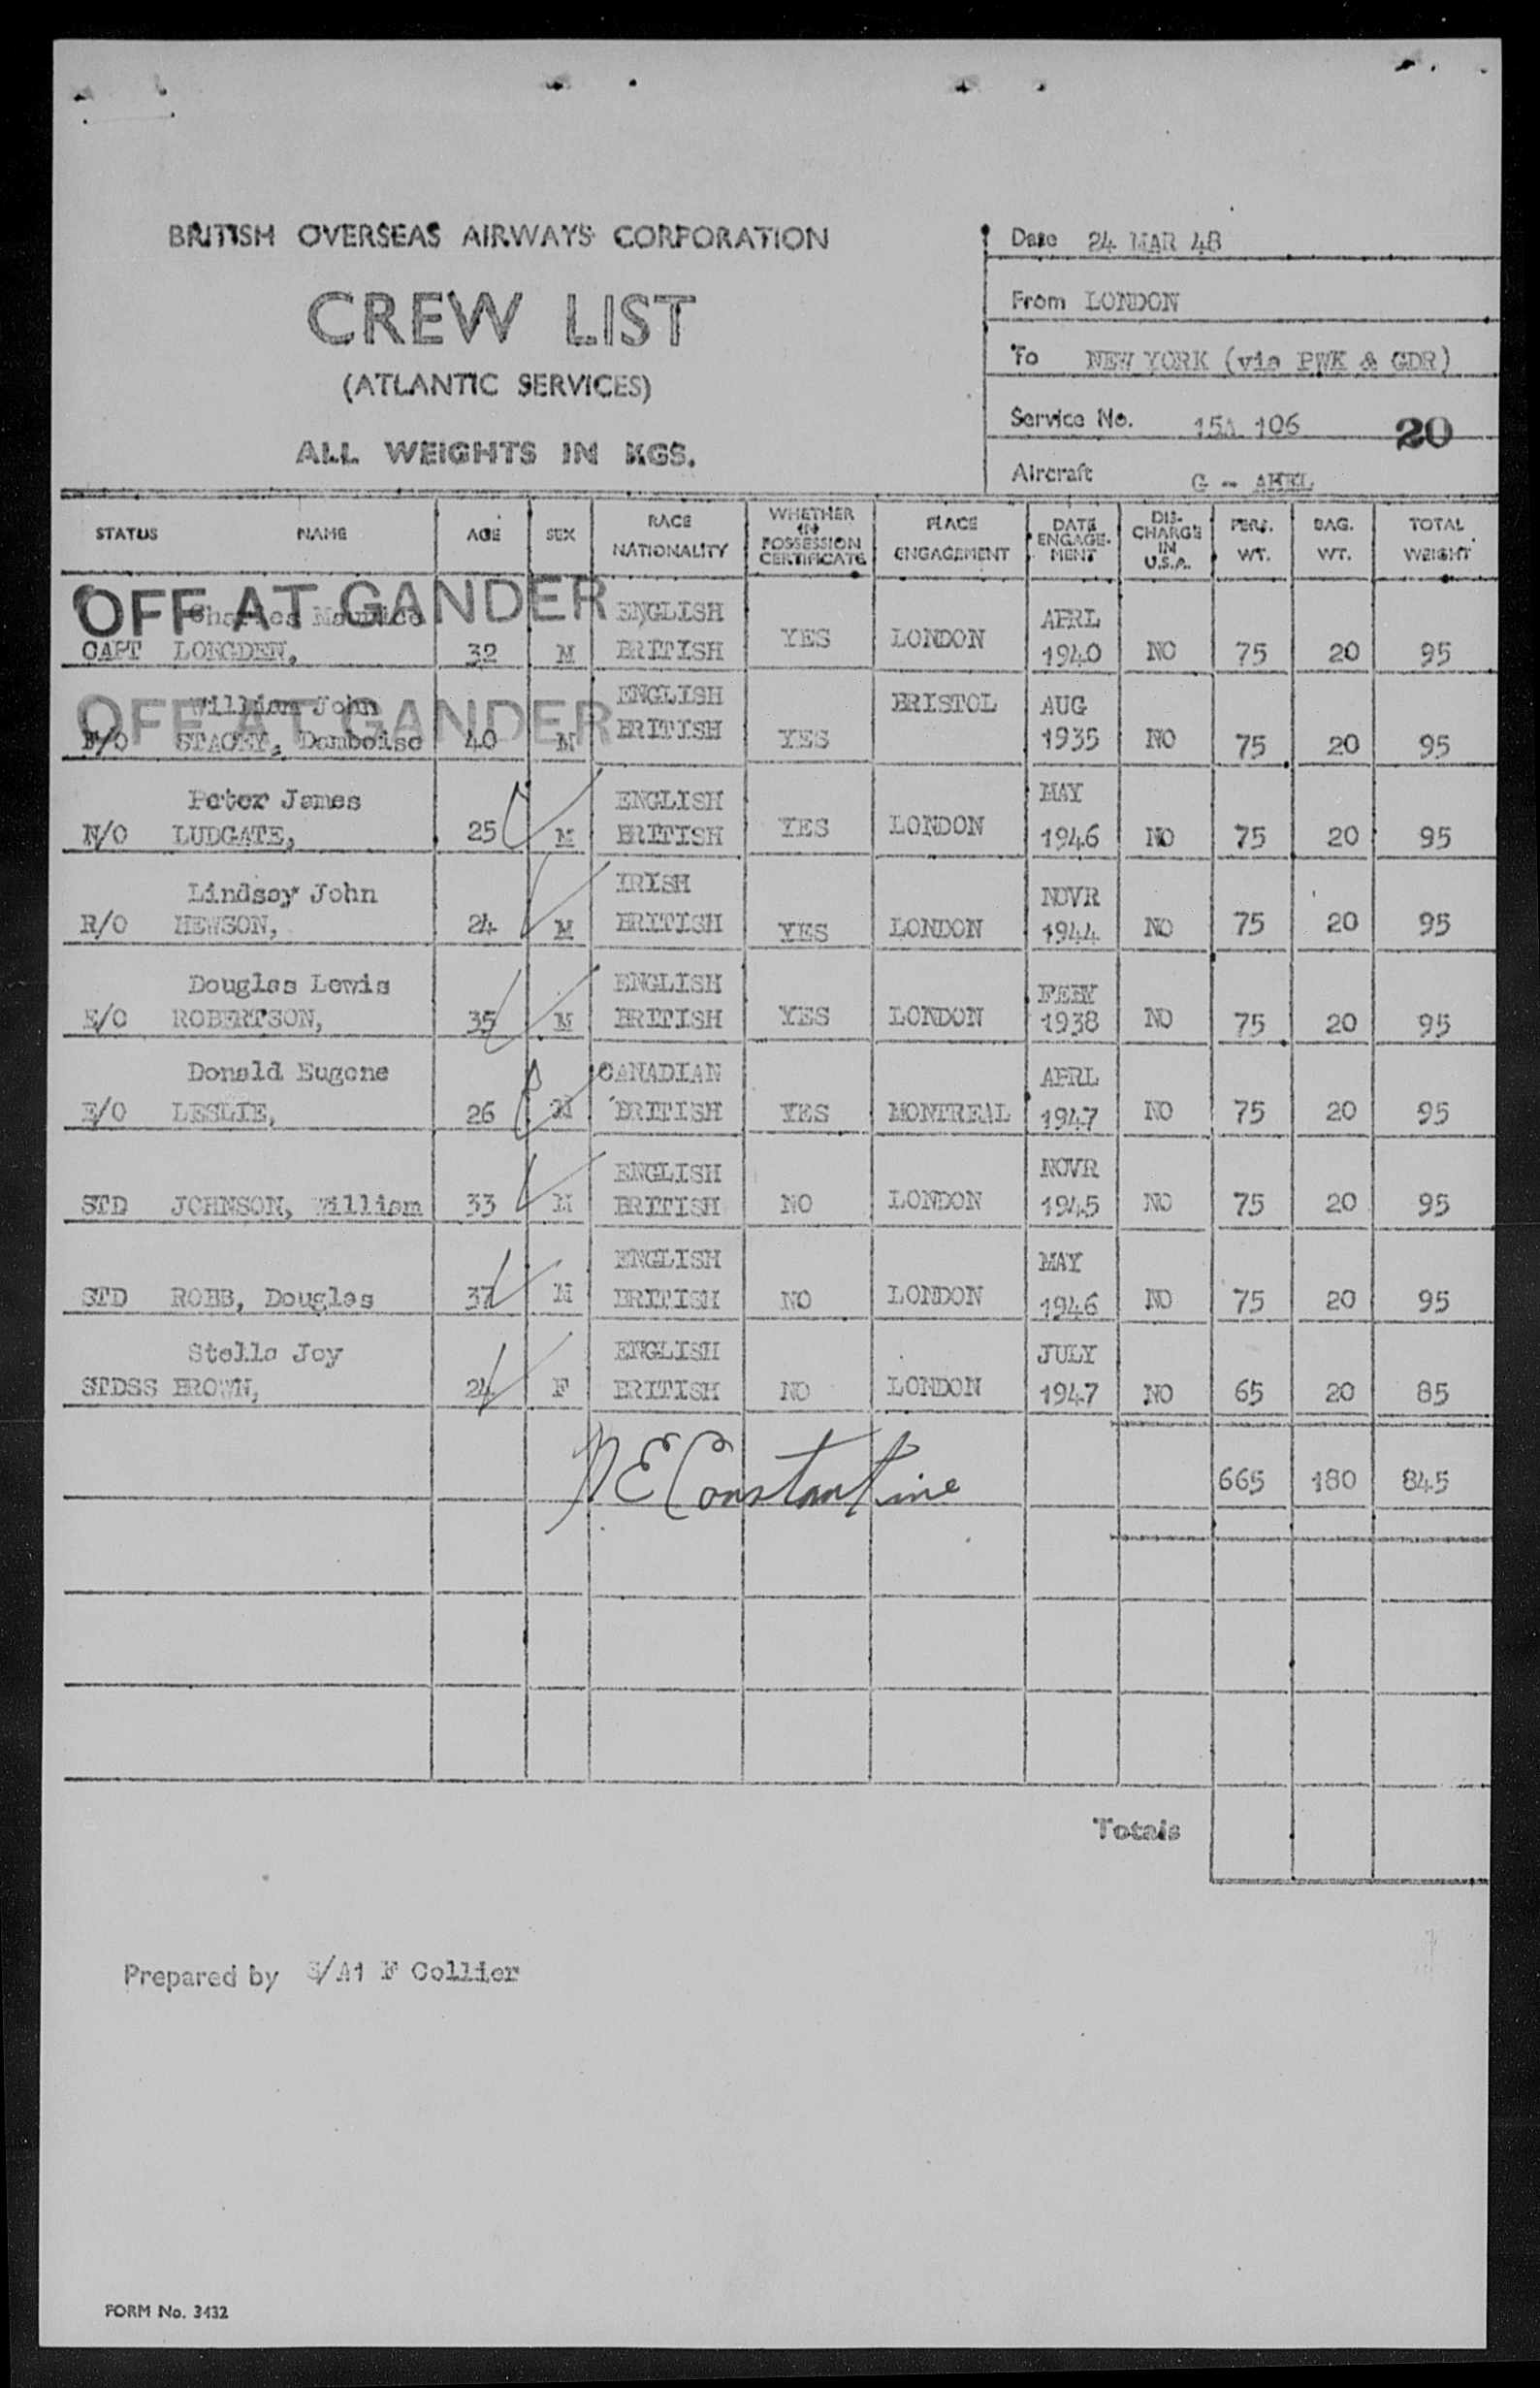 BRITISH OVERSEAS AIRWAYS CORPORATION
CREW LIST
(ATLANTIC SERVICES)
ALL WEIGHTS IN KGS.
Date 24 MAR 48
From LONDON
To NEW YORK (via PWK & GDR)
Service No. 15A 106 20
Aircraft G - AHEL
STATUS NAME AGE SEX RACE NATIONALITY WHETHER IN POSSESSION CERTIFICATE PLACE ENGAGEMENT DATE ENGAGE-MENT DIS-CHARGE IN U.S.A. PERS. WT. BAG. WT. TOTAL WEIGHT
OFF AT GANDER
Charles Maurice ENGLISH APRL
CAPT LONGDEN, 32 M BRITISH YES LONDON 1940 NO 75 20 95
OFF AT GANDER
William John ENGLISH BRISTOL AUG
F/O STACEY, Damboise 40 M BRITISH YES 1935 NO 75 20 95
Peter James ENGLISH MAY
N/O LUDGATE, 25 M BRITISH YES LONDON 1946 NO 75 20 95
Lindsay John IRISH NOVR
R/O HEWSON, 24 M BRITISH YES LONDON 1944 NO 75 20 95
Douglas Lewis ENGLISH
E/O ROBERTSON, 35 M BRITISH YES LONDON 1938 NO 75 20 95
Donald Eugene CANADIAN APRL
E/O LESLIE, 26 M BRITISH YES MONTREAL 1947 NO 75 20 95
ENGLISH NOVR
STD JOHNSON, William 33 M BRITISH NO LONDON 1945 NO 75 20 95
ENGLISH MAY
STD ROBB, Douglas 37 M BRITISH NO LONDON 1946 NO 75 20 95
Stella Joy ENGLISH JULY
STDSS BROWN, 24 F BRITISH NO LONDON 1947 NO 65 20 85
N E Constantine 665 180 845
Totals
Prepared by S/A1 F Collier
FORM No. 3432